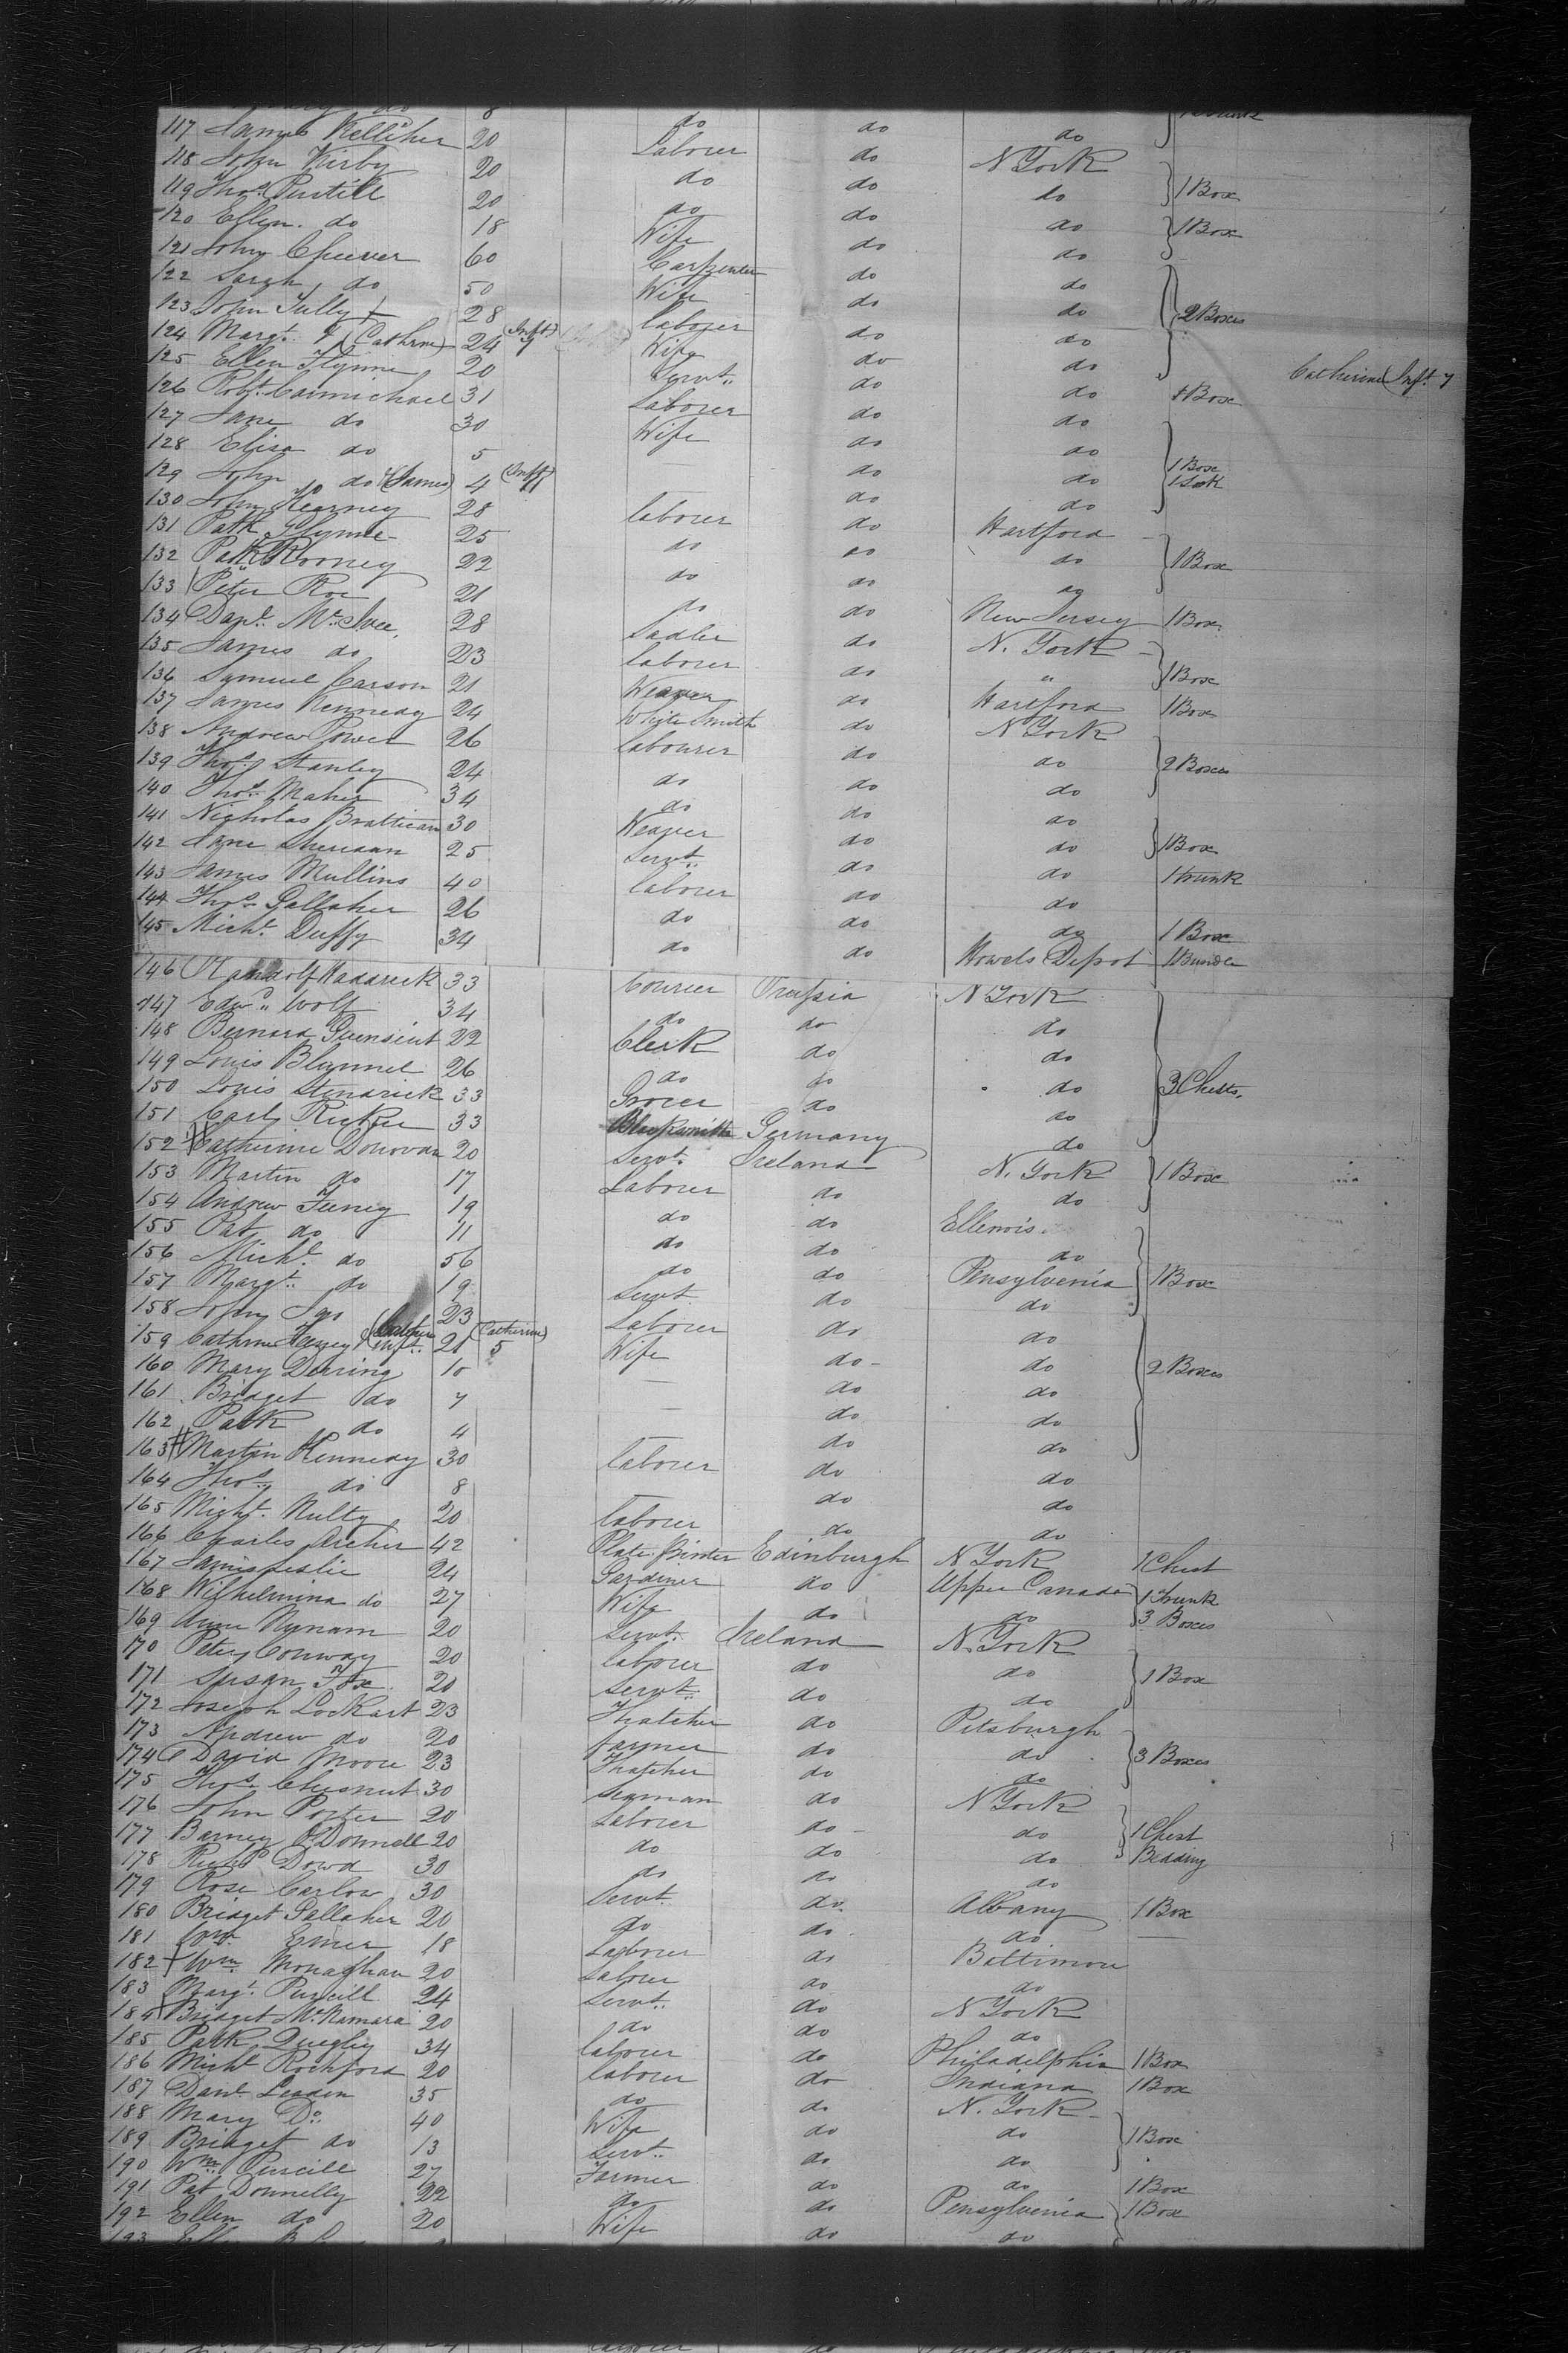 117 James Kelliher 20 Laborer do do
118 John Kirby 20 do do N York
119 Thos. Purtill 20 do do do 1 Box
120 Ellen do 18 Wife do do 1 Box
121 John Cheever 60 Carpenter do do
122 Sarah do 50 Wife do do
123 John Tully 28 laborer do do 2 Boxes
124 Margt. & (Cathrne) 24 (Inft) 7 Wife do do
125 Ellen Flynne 20 Servt. do do Catherine (Inft. 7
126 Robt. Carmichael 31 Laborer do do 1 Box
127 Jane do 30 Wife do do
128 Elisa do 5 do do 1 Box
129 John do (James) 4 (Inft) do do 1 Sack
130 John Kearney 28 laborer do do
131 Patk Flynne 25 do do Hartford
132 Patk Rooney 22 do do do 1 Box
133 Peter Roe 21 do do do
134 Danl. McIvee 28 Sadler do New Jersey 1 Box
135 James do 23 laborer do N. York
136 Samuel Carson 21 Weaver do " 1 Box
137 James Kennedy 24 White Smith do Hartford 1 Box
138 Andrew Power 26 labourer do N York
139 Thos. Stanley 24 do do do 2 Boxes
140 Thos. Maher 34 do do do
141 Nicholas Brattican 30 Weaver do do
142 Jane Sheridan 25 Servt. do do 1 Box
143 James Mullins 40 laborer do do 1 trunk
144 Thos. Gallaher 26 do do do
145 Michl. Duffy 34 do do do 1 Box
Howels Depot 1 Bundle
146 Randolf Hadarick 33 Courier Prussia N York
147 Edwd. Wolf 34 do do do
148 Bernard 22 Clerk do do
149 Louis Blummel 26 do do do 3 Chests
150 Louis Stendrick 33 Grocer do do
151 Carl Ricker 33 Blacksmith Germany do
152 Catherine Donovan 20 Servt. Ireland N. York 1 Box
153 Martin do 17 Laborer do do
154 Andrew Feeney 19 do do Ellenois
155 Pat do 11 do do do
156 Michl. do 56 do do Pensylvenia 1 Box
157 Margt. do 19 Servt do do
158 John 23 Laborer do do
159 Cathrne & (Catherine Inft.) 21 (Catherine) 5 Wife do do 2 Boxes
160 Mary Derring 10 do do
161 Bridget do 7 do do
162 Patk do 4 do do
163 Martin Kennedy 30 laborer do do
164 Thos. do 8 do do
165 Michl. Nulty 20 laborer do do
166 Charles Archer 42 Plate Printer Edinburgh N York 1 Chest
167 James Leslie 24 Gardiner do Upper Canada 1 Trunk
168 Wilhelmina do 27 Wife do do 3 Boxes
169 Anne Mynam 20 Servt. Ireland N. York
170 Peter Conway 20 laborer do do 1 Box
171 Susan Fox 20 Servt. do do
172 Joseph Lockart 23 Thatcher do Pitsburgh
173 Andrew do 20 farmer do do 3 Boxes
174 David Moore 23 Thatcher do do
175 Thos. Chesnut 30 Seaman do N York
176 John Porter 20 Laborer do do 1 Chest
177 Barney O'Donnell 20 do do do Bedding
178 Richd Dowd 30 do do do
179 Rose Carlow 30 Servt. do Albany 1 Box
180 Bridget Gallaher 20 do do do
181 Wm. Emer 18 Laborer do Boltimore
182 Wm. Monaghan 20 Laborer do do
183 Margt. Purcill 24 Servt. do N York
184 Bridget McNamara 20 do do do
185 Patk Quigley 34 laborer do Philadelphia 1 Box
186 Michl Rochford 20 laborer do Indiana 1 Box
187 Danl. Leaden 35 do do N. York
188 Mary Do. 40 Wife do do 1 Box
189 Bridget do 13 Servt. do do
190 Wm. Purcill 27 Farmer do do 1 Box
191 Pat Donnelly 22 do do Pensylvenia 1 Box
192 Ellen do 20 Wife do do